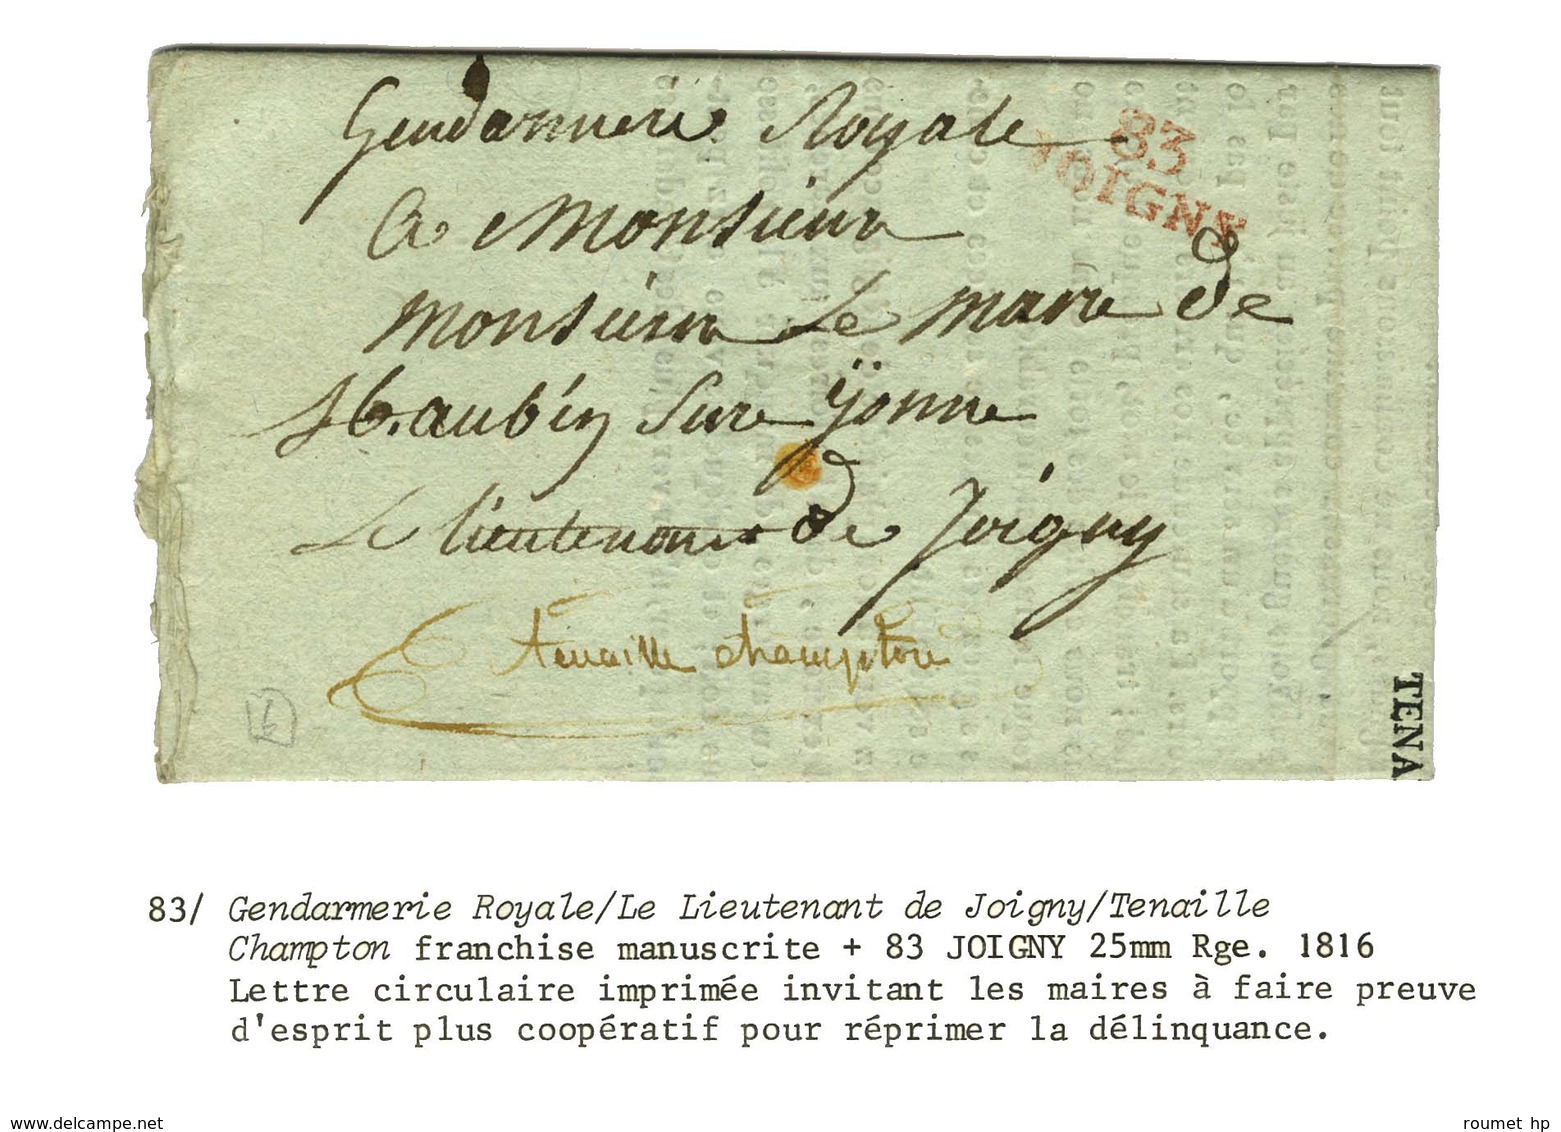 Gendarmerie Royale
83
JOIGNY
A Monsieur
Monsieur Le maire de
St. aubin sur yonne
Le lieutenant de Joigny
Tenaille Champton
TENA
83/ Gendarmerie Royale/Le Lieutenant de Joigny/Tenaille
Champton franchise manuscrite + 83 JOIGNY 25mm Rge. 1816
Lettre circulaire imprimée invitant les maires à faire preuve
d'esprit plus coopératif pour réprimer la délinquance.
www.delcampe.net
roumet hp